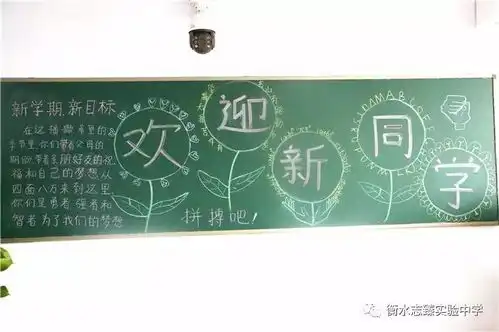 新学期,新目标
在这播撒希望的
季节里,你们带着父母的
期盼,带着亲朋好友的祝
福和自己的梦想从
四面八方来到这里,
你们是勇者,强者和
智者为了我们的梦想
拼搏吧!
欢迎新同学
衡水志臻实验中学